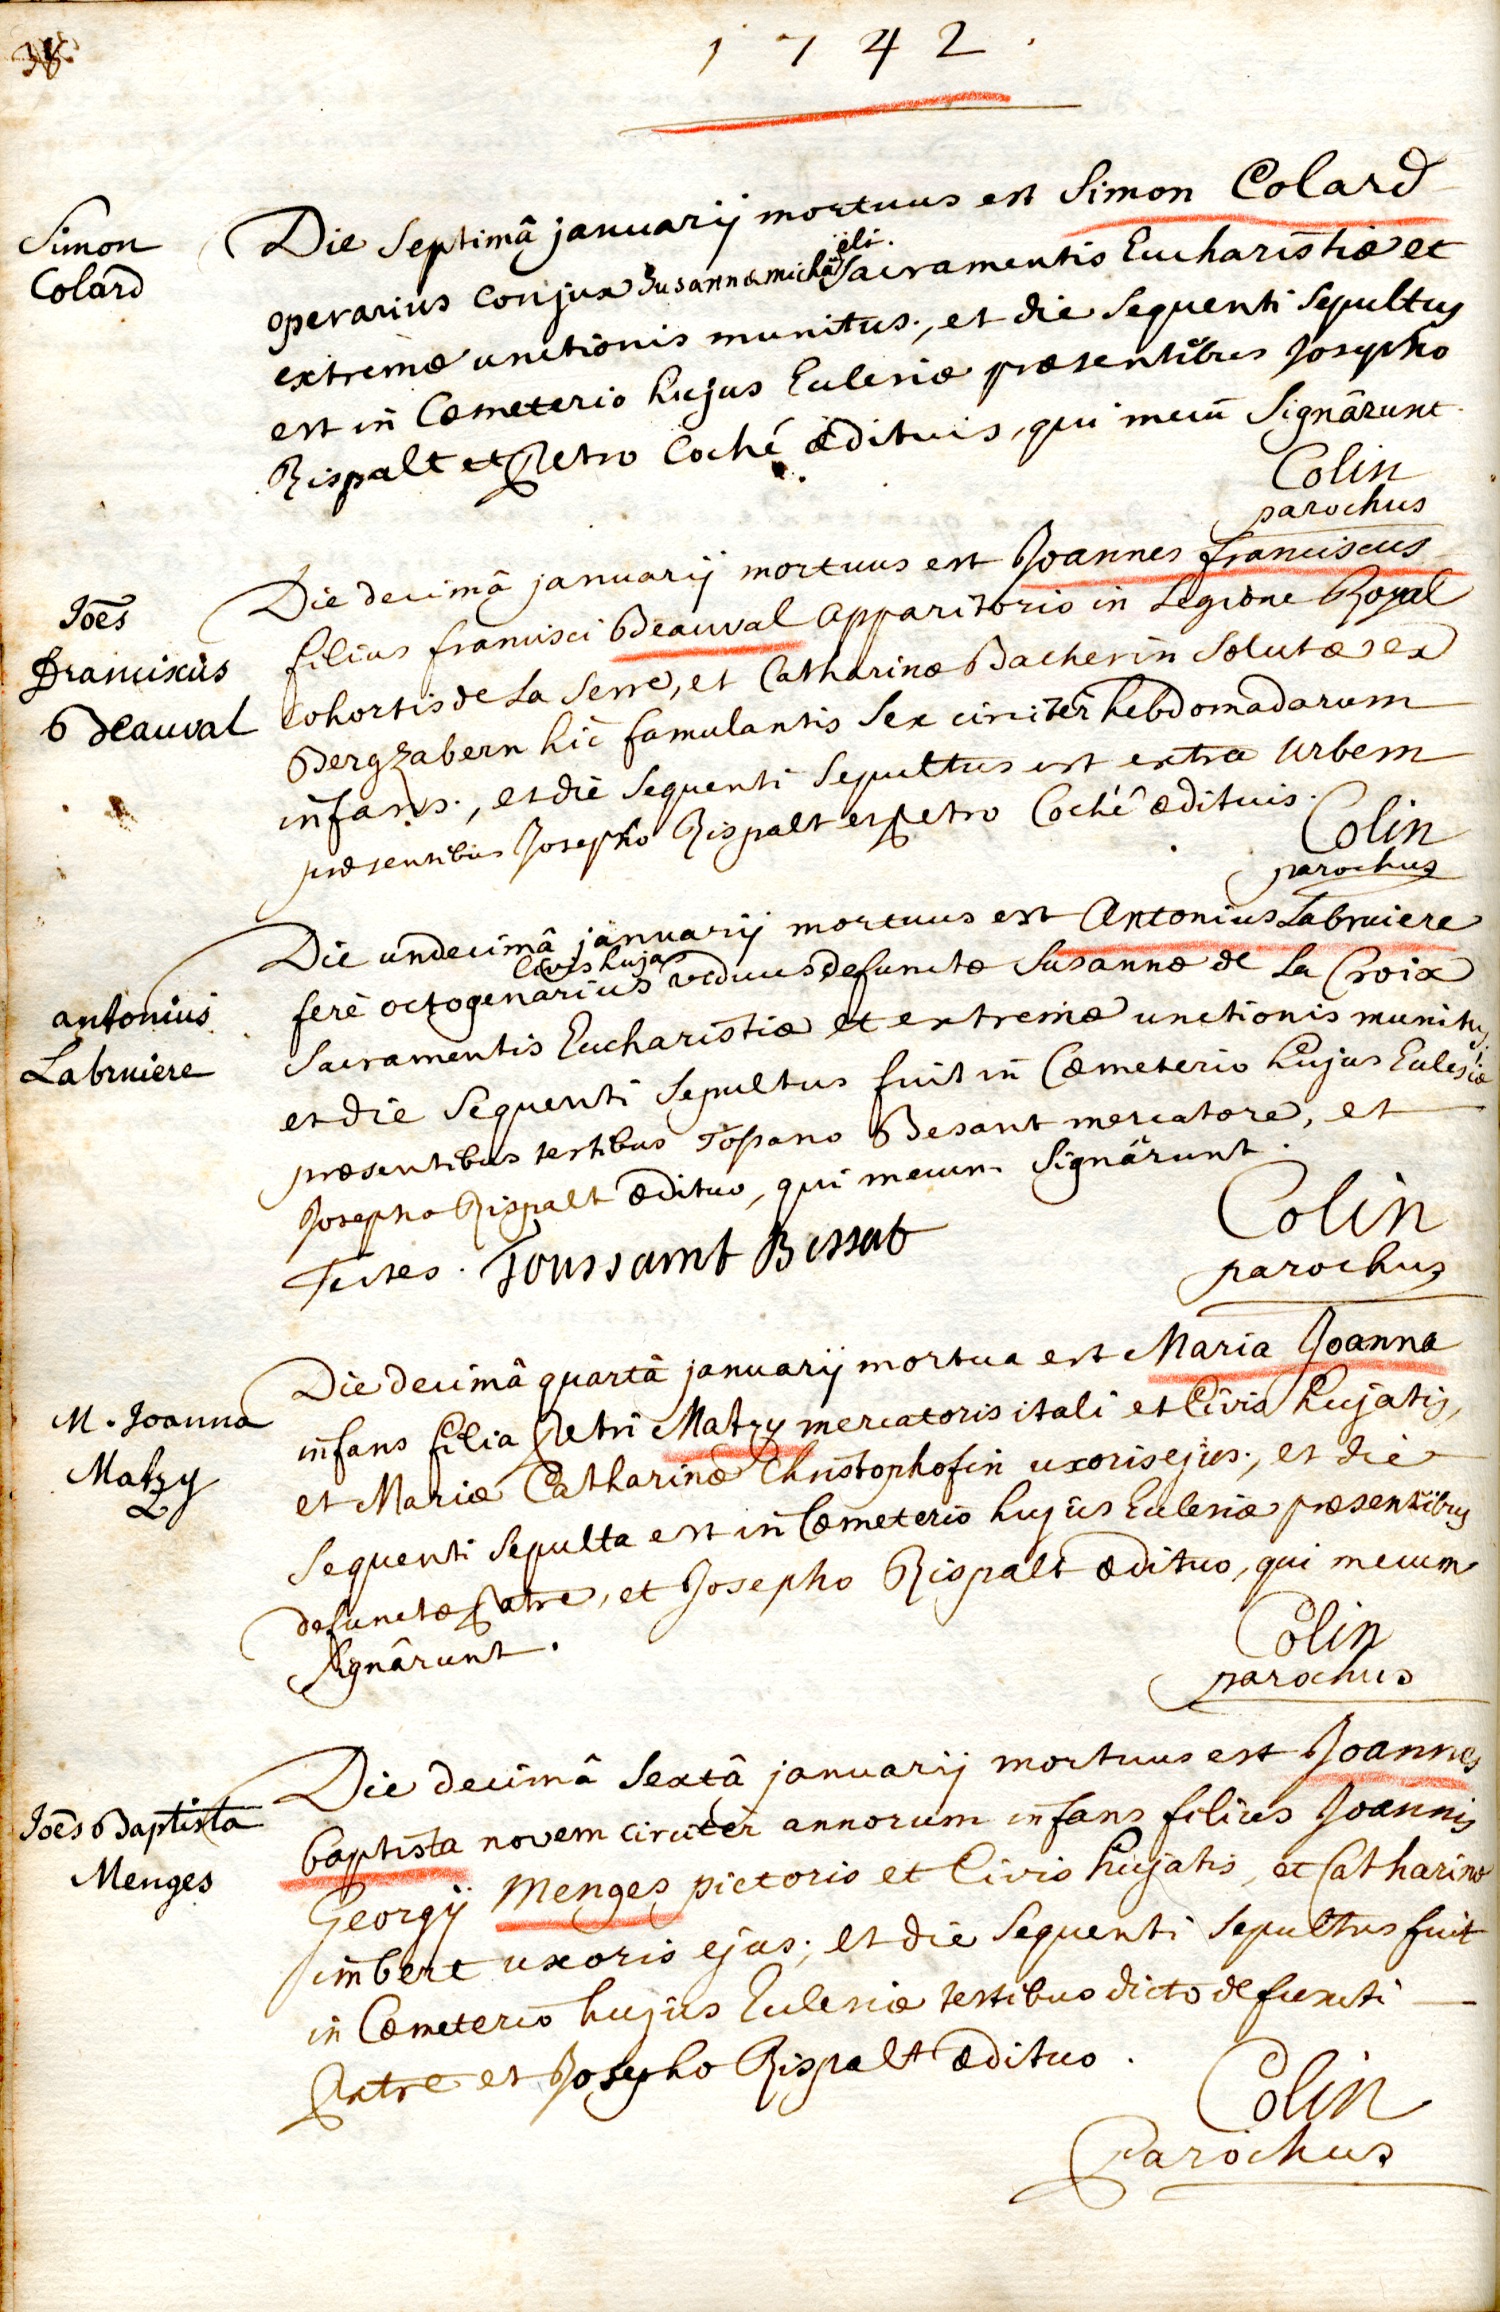 1742.
Simon
Colard
Die Septimâ januarij mortuus est Simon Colard
operarius conjux Susannæ michäeli. Sacramentis Eucharistiæ et
extremæ unctionis munitus., et die sequenti sepultus
est in Cœmeterio hujus Ecclesiæ præsentibus Josepho
Rispalt et Petro Coché ædituis, qui mecū Signârunt.
Colin
parochus
Joēs
Franciscus
Beauval
Die decimâ januarij mortuus est Joannes franciscus
filius francisci Beauval Apparitorio in Legione Royal
Cohortis de La Serre, et Catharinæ Bacherin Solutæ ex
Bergzabern hic famulantis Sex circiter hebdomadarum
infans., et die sequenti sepultus est extra Urbem
præsentibus Josepho Rispalt et Petro Coché ædituis.
Colin
parochus
antonius
Labruiere
Die undecimâ januarij mortuus est Antonius Labruiere
civis hujas
ferè octogenarius viduus defunctæ Susannæ de La Croix
Sacramentis Eucharistiæ et extremæ unctionis munitus,
et die sequenti sepultus fuit in Cœmeterio hujus Ecclesiæ
præsentibus testibus Tossano Besant mercatore, et
Josepho Rispalt ædituo, qui mecum Signârunt.
Testes. Toussaint Bessat
Colin
parochus
M. Joanna
Matzy
Die decimâ quartâ januarij mortua est Maria Joanna
infans filia Petri Matzy mercatoris itali et Civis hujatis,
et Mariæ Catharinæ Christophosin uxoris ejus., et die
sequenti sepulta est in Cœmeterio hujus Ecclesiæ præsentibus
defunctæ Patre, et Josepho Rispalt ædituo, qui mecum
signârunt.
Colin
parochus
Joēs Baptista
Menges
Die decimâ Sextâ januarij mortuus est Joannes
baptista novem circiter annorum infans filius Joannis
Georgij Menges pictoris et Civis hujatis, et Catharinæ
imbert uxoris ejus; et die sequenti sepultus fuit
in Cœmeterio hujus Ecclesiæ testibus dicto defuncti
Patre et Josepho Rispalt ædituo.
Colin
Parochus